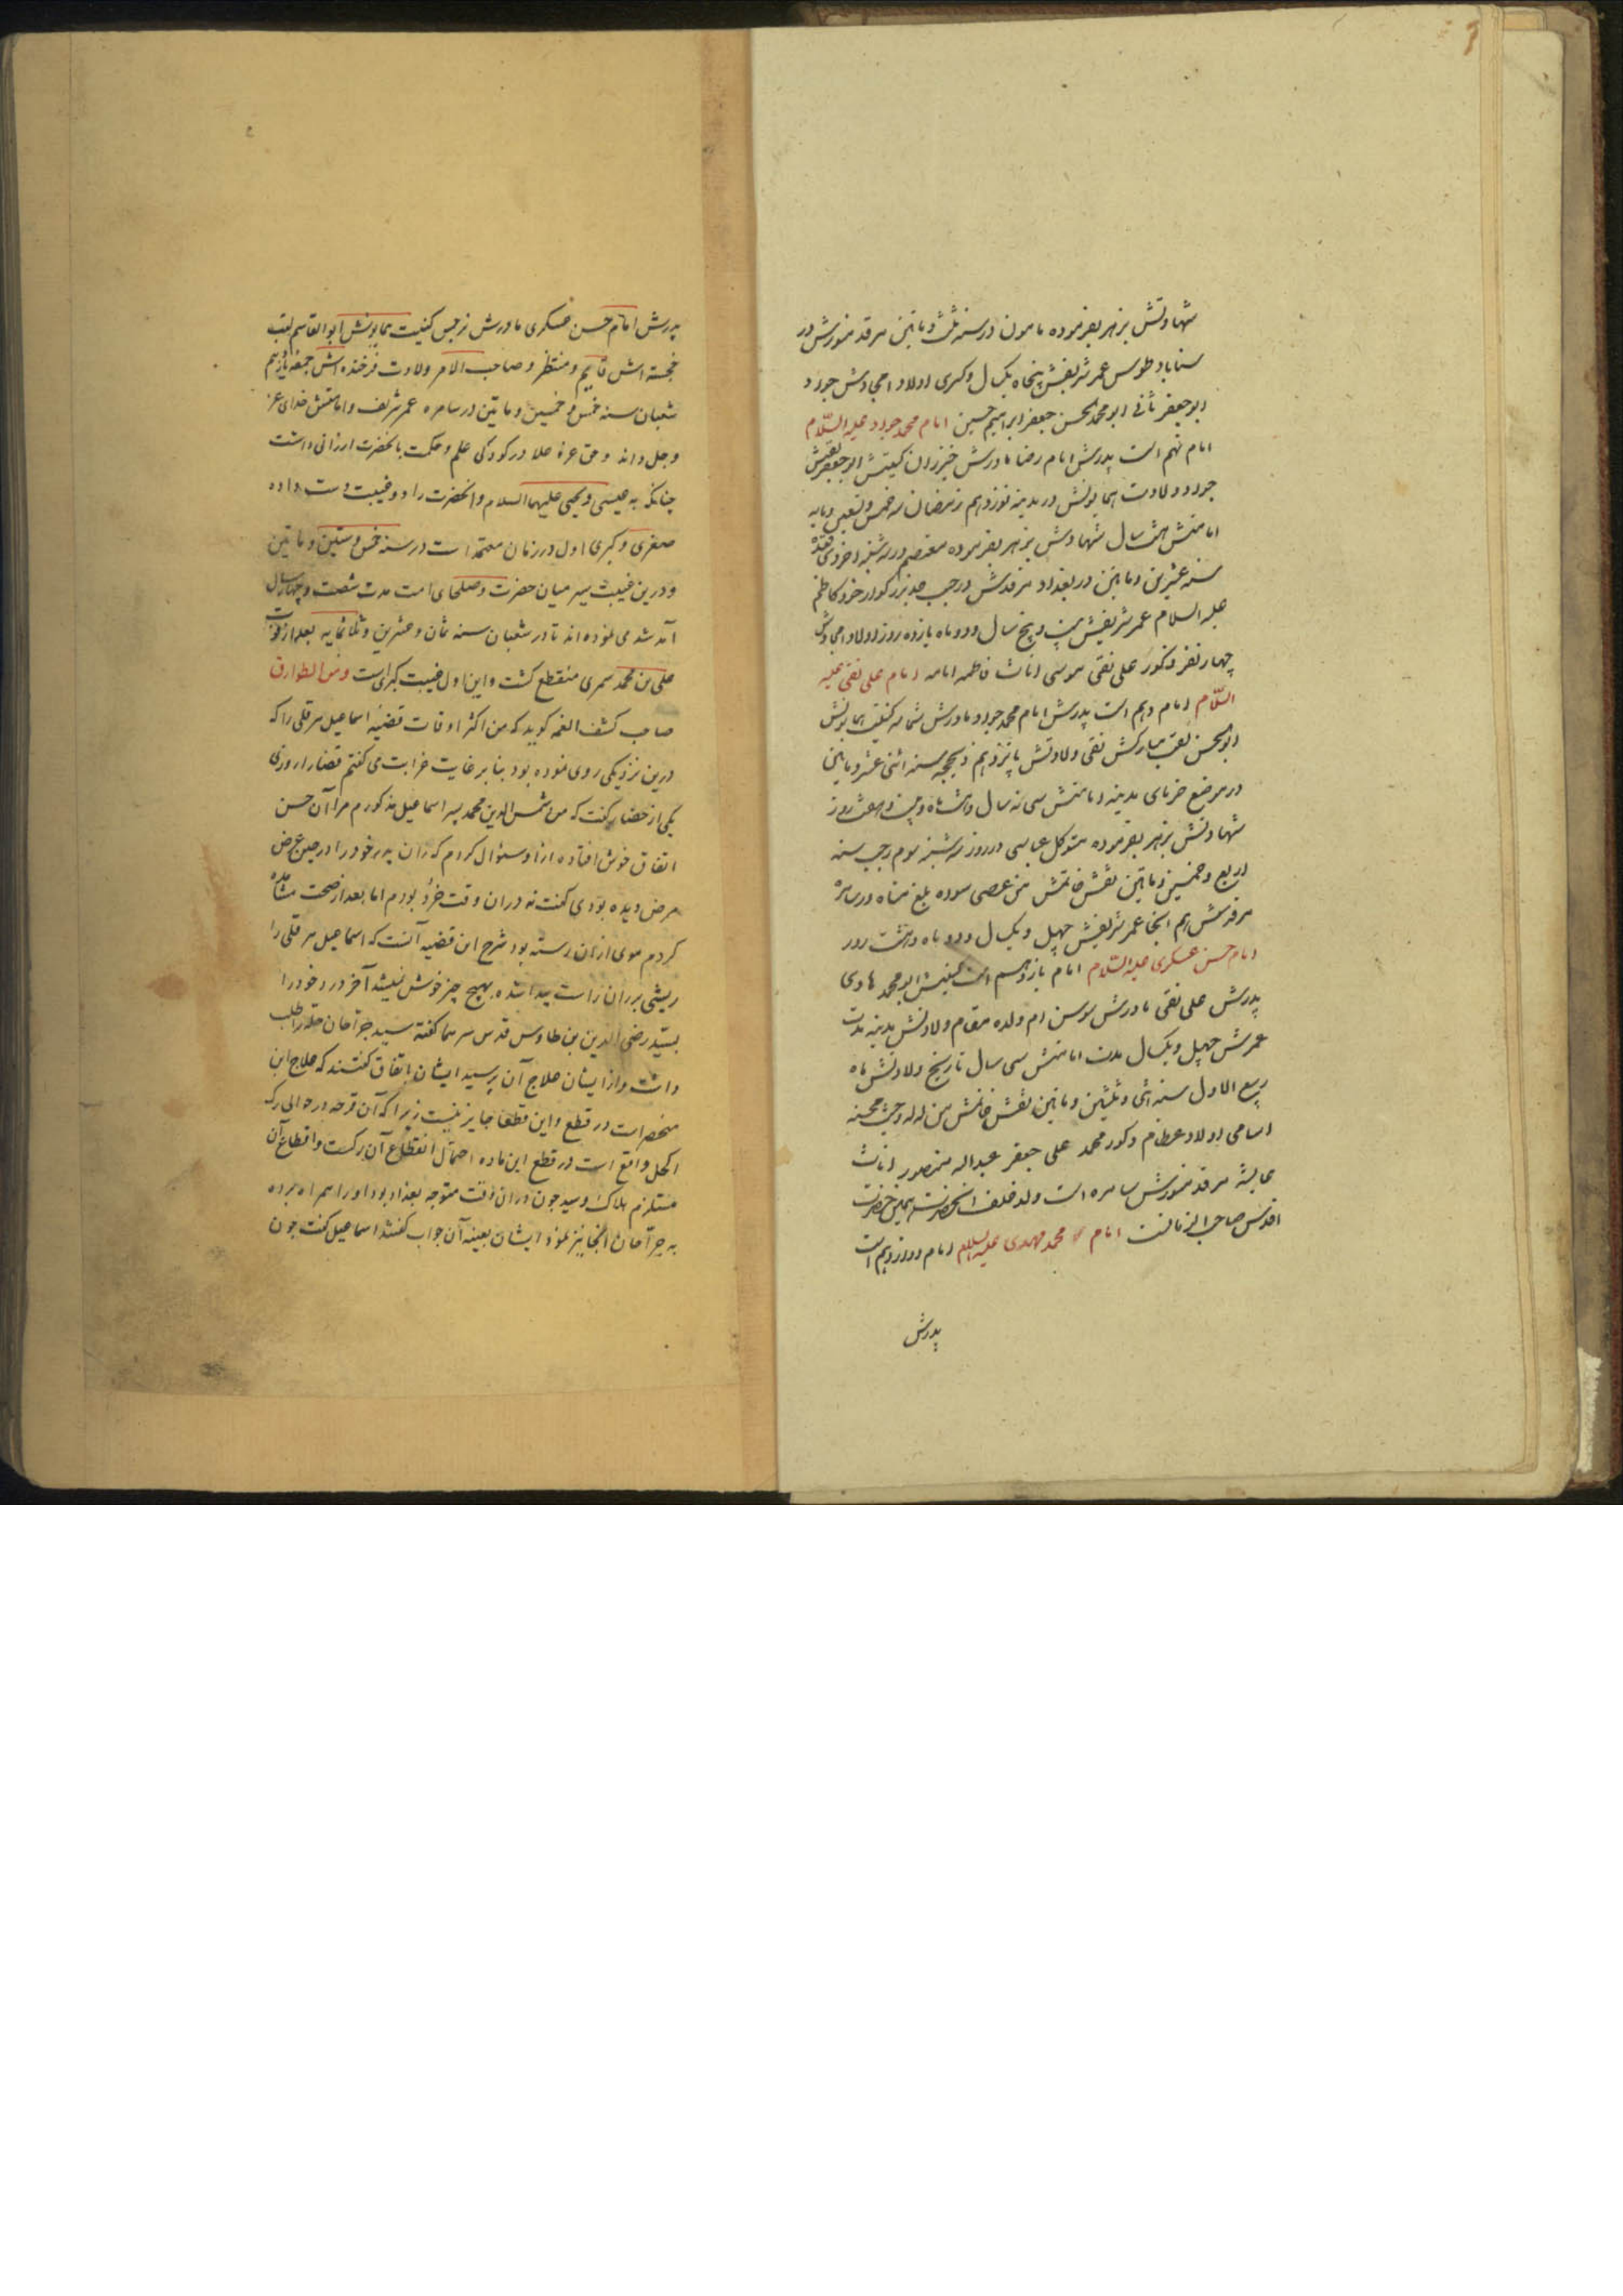 شهادتش بزهر بفرموده مامون در سنه ثلث و ماتین مرقد منورش در
سناباد طوس عمر شریفش پنجاه یکسال و کسری اولاد امجادش جواد
ابوجعفر ثانی ابومحمد الحسن جعفر ابراهیم حسین امام محمد جواد علیه السّلام
امام نهم است پدرش امام رضا مادرش خیزران کنیتش ابوجعفر لقبش
جواد ولادت همایونش در مدینه نوزدهم رمضان سنه خمس و تسعین ومایه
امامتش هفت سال شهادتش بزهر بفرموده معتصم در سه شنبه اخر ذی قعده
سنه عشرین و ماتین در بغداد مرقدش در جنب جد بزرکوار خود کاظم
علیه السلام عمر شریفش بیست و پنج سال و دو ماه یازده روز اولاد امجادش
چهار نفر ذکور علی نقی موسی اناث فاطمه امامه امام علی نقی علیه
السّلام امام دهم است پدرش امام محمد جواد مادرش شمانه کنیت همایونش
ابوالحسن لقب مبارکش نقی ولادتش پانزدهم ذیحجه سنه اثنی عشر و ماتین
در موضع خربای مدینه امامتش سی سه سال و هشت ماه و بیست و هفت روز
شهادتش بزهر بفرموده متوکل عباسی در روز سه شنبه سوم رجب سنه
اربع و خمسین و ماتین نقش خاتمش من عصی سوده بلغ مناه در سامره
مرقدش هم آنجا عمر شریفش چهل و یکسال و دو ماه و هشت روز
امام حسن عسکری علیه السّلام امام یازدهم است کنیتش ابومحمد هادی
پدرش علی نقی مادرش سوسن ام ولده مقام ولادتش مدینه مدت
عمرش چهل و یکسال مدت امامتش سی سال تاریخ ولادتش ماه
ربیع الاول سنه اثنی و ثلثین و ماتین نقش خاتمش
اسامی اولاد عظام ذکور محمد علی جعفر عبداله منصور اناث
عایشه مرقد منورش سامره است ولد خلف آنحضرت همین حضرت
اقدس صاحب الزمانست امام محمد مهدی علیه السلام امام دوازدهم است
پدرش
پدرش امام حسن عسکری مادرش نرجس کنیت همایونش ابوالقاسم لقب
خجسته اش قایم و منتظر و صاحب الامر ولادت فرخنده اش جمعه پانزدهم
شعبان سنه خمس و خمسین و ماتین در سامره عمر شریف و امامتش خدای عز
و جل داند و حق عز و علا در کودکی علم و حکمت بآنحضرت ارزانی داشت
چنانکه به عیسی و یحیی علیهما السلام و آنحضرت را دو غیبت دست داده
صغری و کبری اول در زمان معتمد است در سنه خمس و ستین و ماتین
و درین غیبت سیر میان حضرت و صلحای امت مدت شصت و چهار سال
آمد شد می نموده اند تا در شعبان سنه ثمان و عشرین و ثلثمایه بعد از فوت
علی بن محمد سمری منقطع کشت و این اول غیبت کبرای است و من الطوارق
صاحب کشف الغمه کوید که من اکثر اوقات قضیه اسماعیل هرقلی را که
درین نزدیکی روی نموده بود بنا بر غایت غرابت می کفتم قضا را روزی
یکی از حضار کفت که من شمس الدین محمد پسر اسماعیل مذکورم مرا آن حسن
اتفاق خوش افتاده از او سئوال کردم که ران پدر خود را در حین عرض
مرض دیده بودی کفت نه دران وقت خرد بودم اما بعد از صحت مشاهده
کردم موی از ان رسته بود شرح این قضیه آنست که اسماعیل هرقلی را
ریشی بر ران راست پیدا شده بهیچ چیز خوش نمیشد آخر درد خود را
بسید رضی الدین بن طاوس قدس سرهما کفته سید جراحان حله را طلب
داشت و از ایشان علاج آن پرسید ایشان باتفاق کفتند که علاج این
منحصر است در قطع و این قطعا جایز نیست زیرا که آن قرحه در حوالی رک
اکحل واقع است در قطع این ماده احتمال انقطاع آن رکست و انقطاع آن
مستلزم هلاک و سید چون دران وقت متوجه بغداد بود او را همراه برده
به جراحان آنجا نیز نمود ایشان بعینه آن جواب کفتند اسماعیل کفت چون